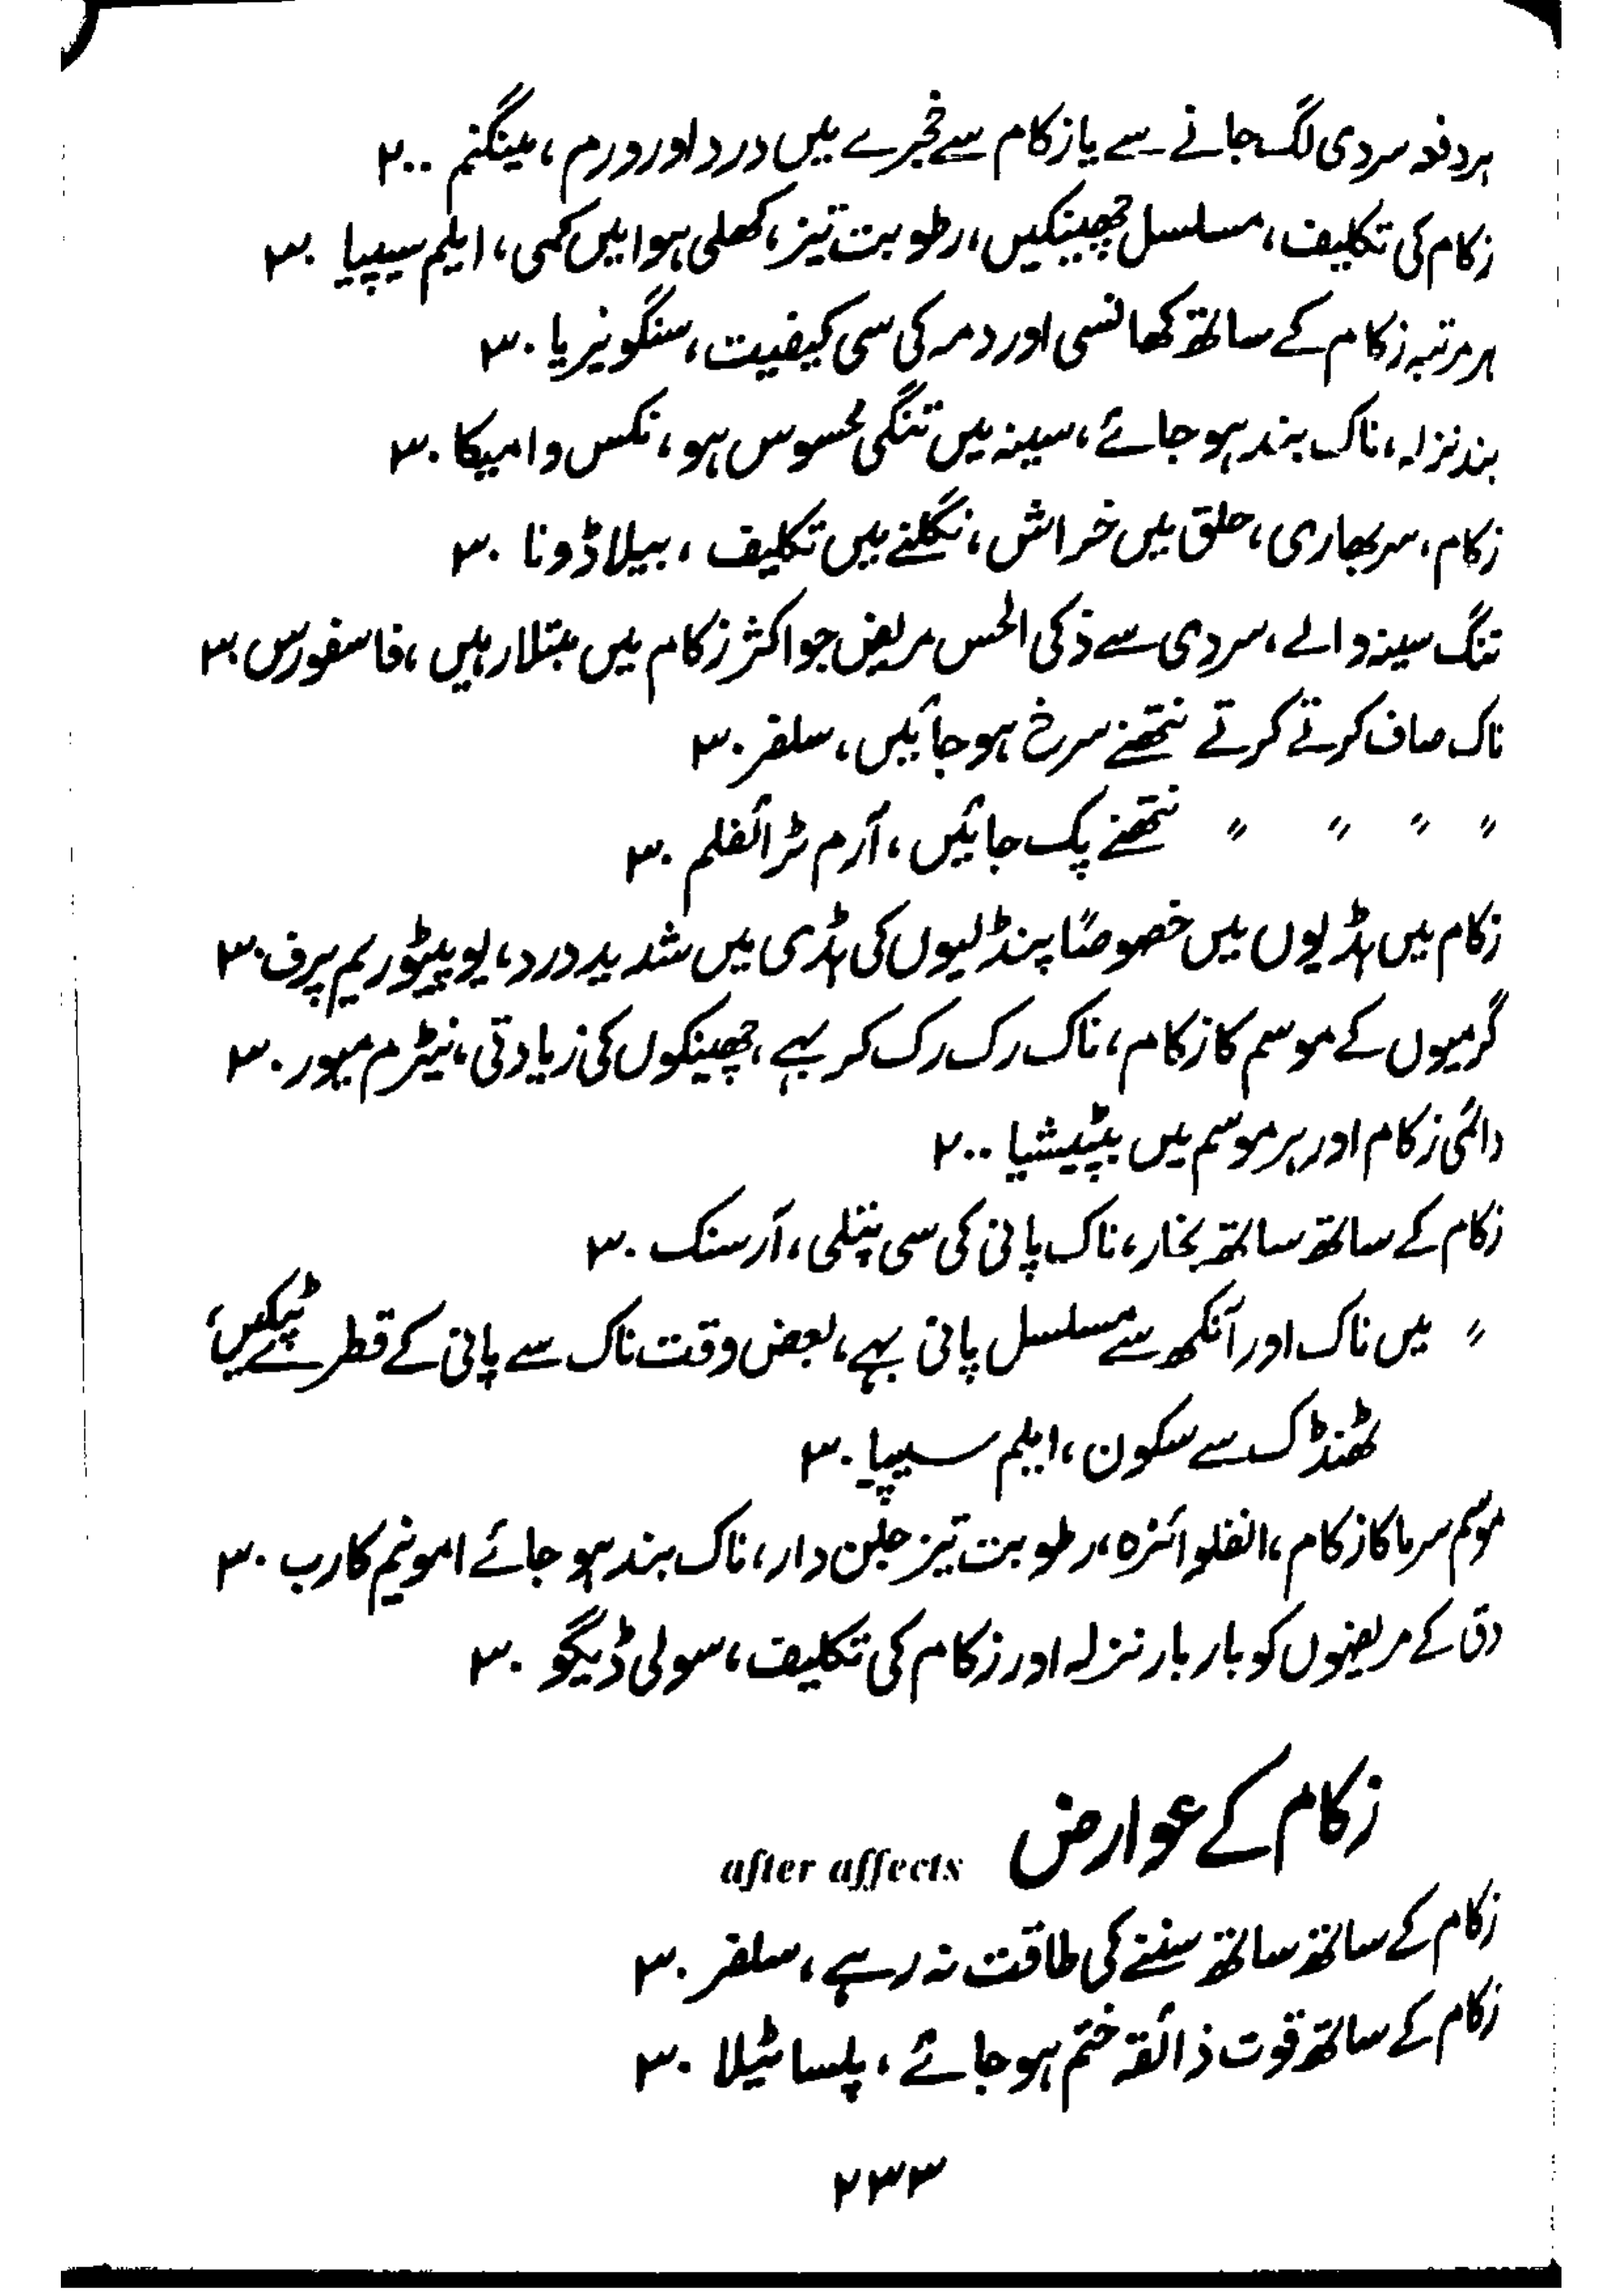 ہر دفعہ سردی لگ جانے سے یا زکام سے خجرے میں درد اور ورم، مینگنم ۲۰۰
زکام کی تکلیف، مسلسل چھینکیں، رطوبت تیز، کھلی ہوا میں کمی، ایلم سیپیا ۳۰
ہر مرتبہ زکام کے ساتھ کھانسی اور دمہ کی سی کیفیت، سنگونیریا ۳۰
بند نزلہ، ناک بند ہو جائے، سینہ میں تنگی محسوس ہو، نکس وامیکا ۳۰
زکام، سر بھاری، حلق میں خراش، نگلنے میں تکلیف، بیلاڈونا ۳۰
تنگ سینہ والے، سردی سے ذکی الحس مریض جو اکثر زکام میں مبتلا رہیں، فاسفورس ۳۰
ناک صاف کرتے کرتے نتھنے سرخ ہو جائیں، سلفر ۳۰
〃 〃 〃 〃 نتھنے پک جائیں، آرم ٹرائفلم ۳۰
زکام میں ہڈیوں میں خصوصاً پنڈلیوں کی ہڈی میں شدید درد، یوپیٹوریم پرف ۳۰
گرمیوں کے موسم کا زکام، ناک رک رک کر بہے، چھینکوں کی زیادتی، نیٹرم میور ۳۰
دائمی زکام اور ہر موسم میں بپٹیشیا ۲۰۰
زکام کے ساتھ ساتھ بخار، ناک پانی کی سی پتلی، آرسنک ۳۰
〃 میں ناک اور آنکھ سے مسلسل پانی بہے، بعض وقت ناک سے پانی کے قطرے ٹپکیں،
ٹھنڈک سے سکون، ایلم سیپیا ۳۰
موسم سرما کا زکام، انفلوائنزہ، رطوبت تیز جلن دار، ناک بند ہو جائے امونیم کارب ۳۰
دق کے مریضوں کو بار بار نزلہ اور زکام کی تکلیف، سولی ڈیگو ۳۰
زکام کے عوارض after affects
زکام کے ساتھ ساتھ سننے کی طاقت نہ رہے، سلفر ۳۰
زکام کے ساتھ قوت ذائقہ ختم ہو جائے، پلساٹیلا ۳۰
۲۳۳